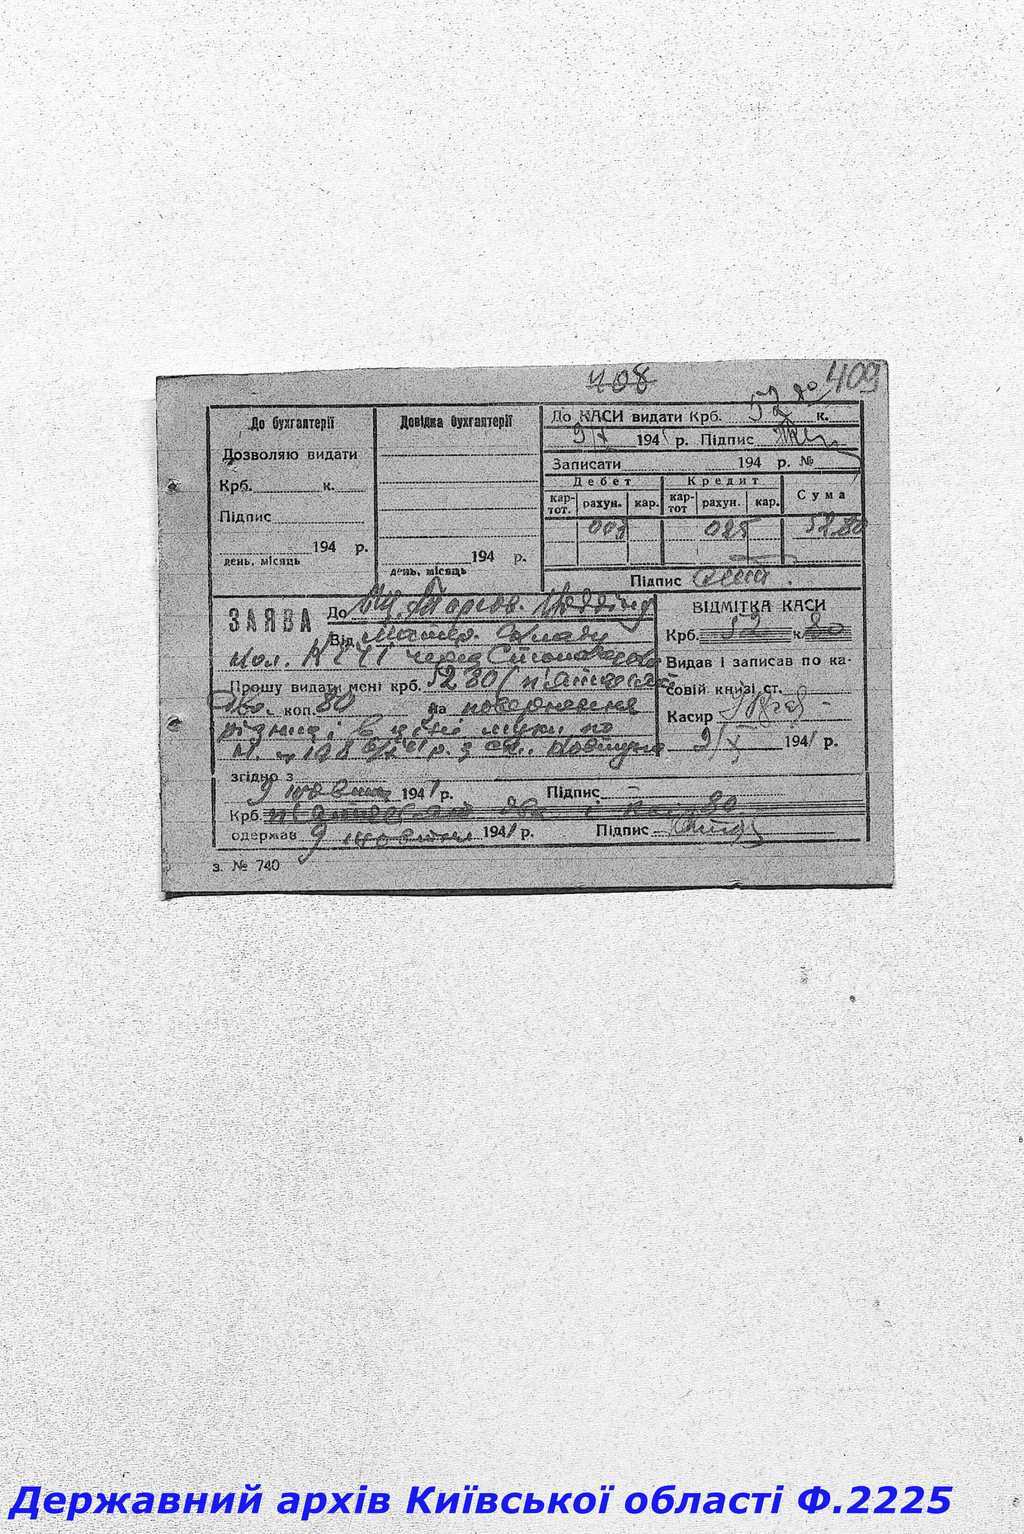 408 409
До бухгалтерії
Дозволяю видати
Крб. к.
Підпис
194 р.
день, місяць
Довідка бухгалтерії
194 р.
день, місяць
52 80
До КАСИ видати Крб. к.
9/X 194 р. Підпис
Записати 194 р. №
Дебет Кредит Сума
кар-тот. рахун. кар. кар-тот рахун. кар.
003 025 52 80
Підпис
ЗАЯВА До
Від
через
Прошу видати мені крб. 52 80 (п'ятдесят
два. коп. 80 на повернення
різниці в ціні муки по
згідно з
9 жовтня 1941 р. Підпис
Крб. п'ятдесят два і коп 80
одержав 9 жовтня 1941 р. Підпис
ВІДМІТКА КАСИ
Крб. 52 к. 80
Видав і записав по ка-
совій книзі ст.
Касир
9/X 1941 р.
з. № 740
Державний архів Київської області Ф.2225